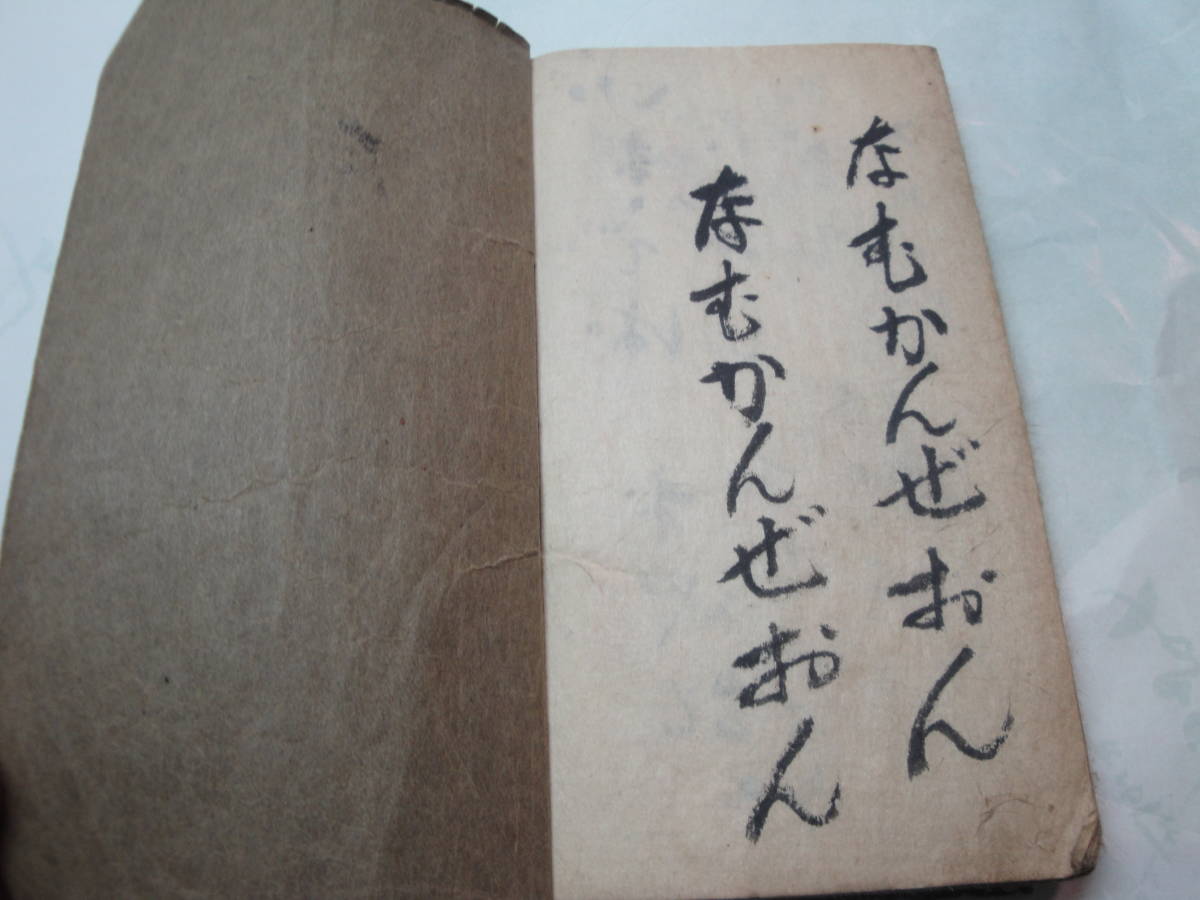 なむかんぜおん
なむかんぜおん